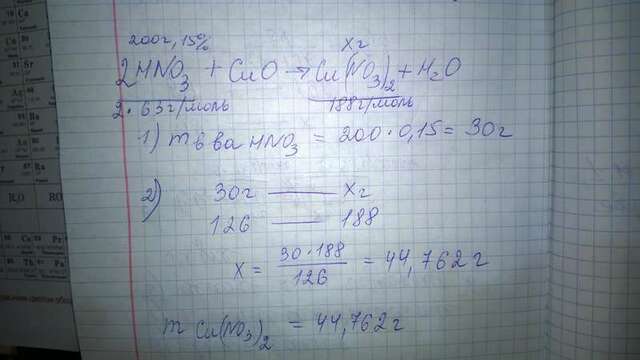 200г, 15% xг
2HNO₃ + CuO → Cu(NO₃)₂ + H₂O
2 · 63г/моль 188г/моль
1) m в ва HNO₃ = 200 · 0,15 = 30г
2) 30г — xг
126 — 188
x = 30 · 188 / 126 = 44,762г
m Cu(NO₃)₂ = 44,762г